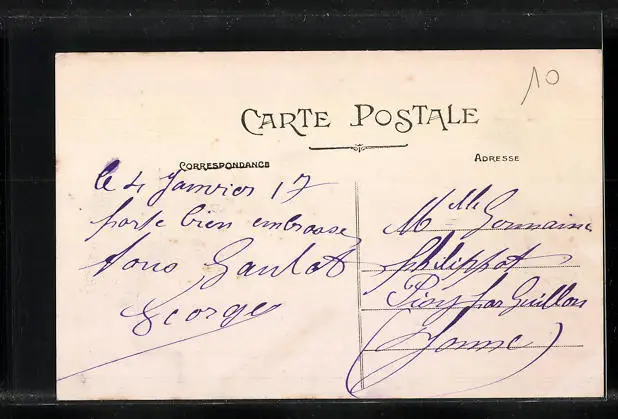 10
CARTE POSTALE
CORRESPONDANCE
ADRESSE
le 4 Janvier 17
porte bien embrasse
tous Gaulot
Georges
Mlle Germaine
Philippot
Pisy par Guillon
(Yonne)